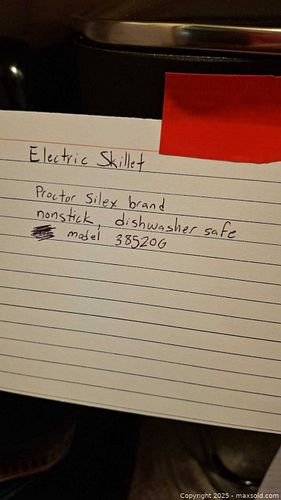 Electric Skillet
Proctor Silex brand
nonstick, dishwasher safe
model 38520G
Copyright 2025 - maxsold.com